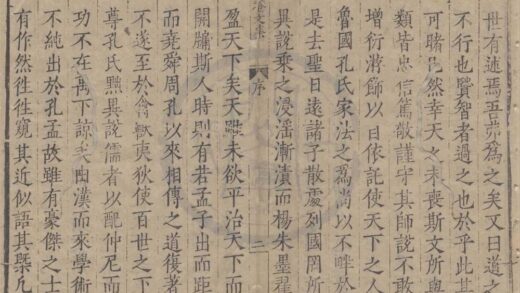 世有述焉吾弗爲之矣又曰道之
不行也賢智者過之也於乎此其
可睹已然幸天之未喪斯文所與
類皆忠信篤敬謹守其師說不敢
增衍飾以依託使天下之人
魯國孔氏家法之爲尚以不畔於
是去聖日遠諸子散處列國罔所
異說乘之浸淫漸漬而楊朱墨翟
文集 序 二
盈天下矣天雖未欲平治天下而
開牖斯人時則有若孟子出而距
而堯舜周孔以來相傳之道復著
不遂至於禽獸夷狄使百世之下
尊孔氏黜異說儒者以配仲尼而
功不在禹下諒矣由漢而來學術
不純出於孔孟故雖有豪傑之士
有作然往往窺其近似語其槩凡